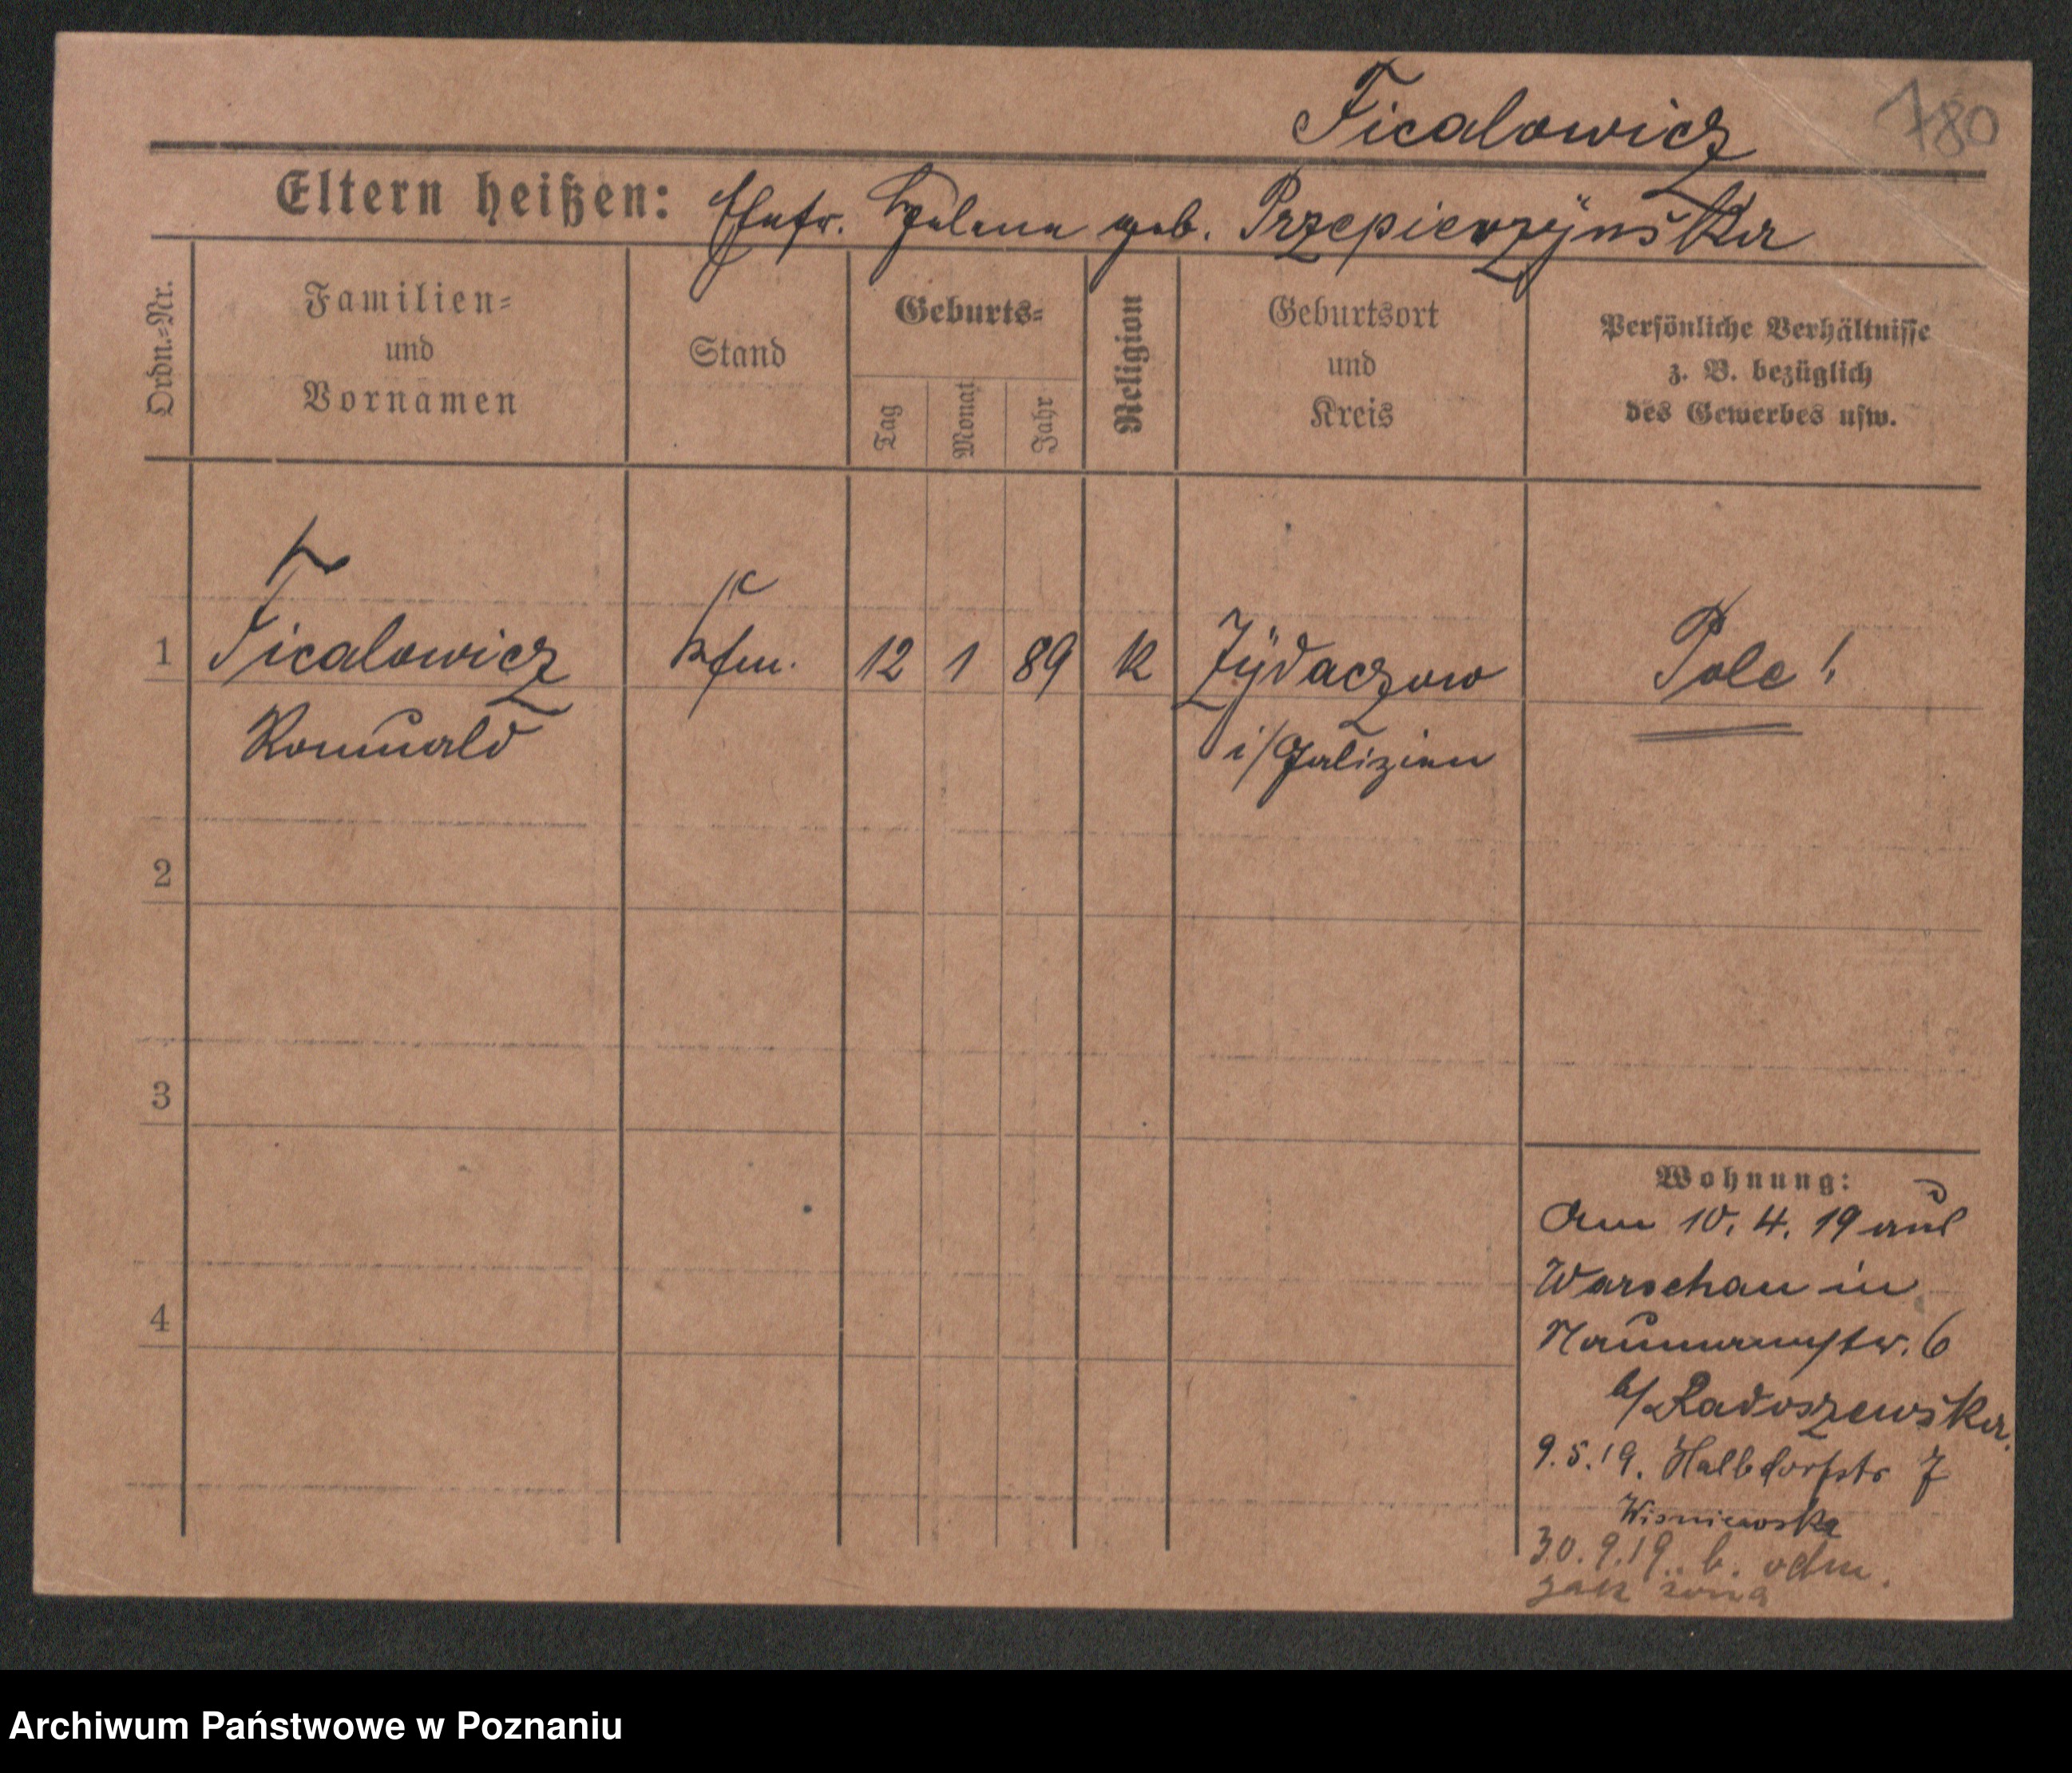 Ficalowicz
780
Eltern heißen: Ehefr. Helena geb. Przepierzÿnska
Ordn.=Nr.
Familien=
und
Vornamen
Stand
Geburts=
Tag
Monat
Jahr
Religion
Geburtsort
und
Kreis
Persönliche Verhältnisse
z. B. bezüglich
des Gewerbes usw.
1 Ficalowicz Kfm. 12 1 89 K Zÿdaczow Pole!
Romuald i/Galizien
2
3
4
Wohnung:
Am 10. 4. 19 aus
Warschau in
Naumannstr. 6
b/Radoszewska.
9.5.19. Halbdorfstr 7
Wisniewska
30.9.19. b. odm.
jak żona
Archiwum Państwowe w Poznaniu